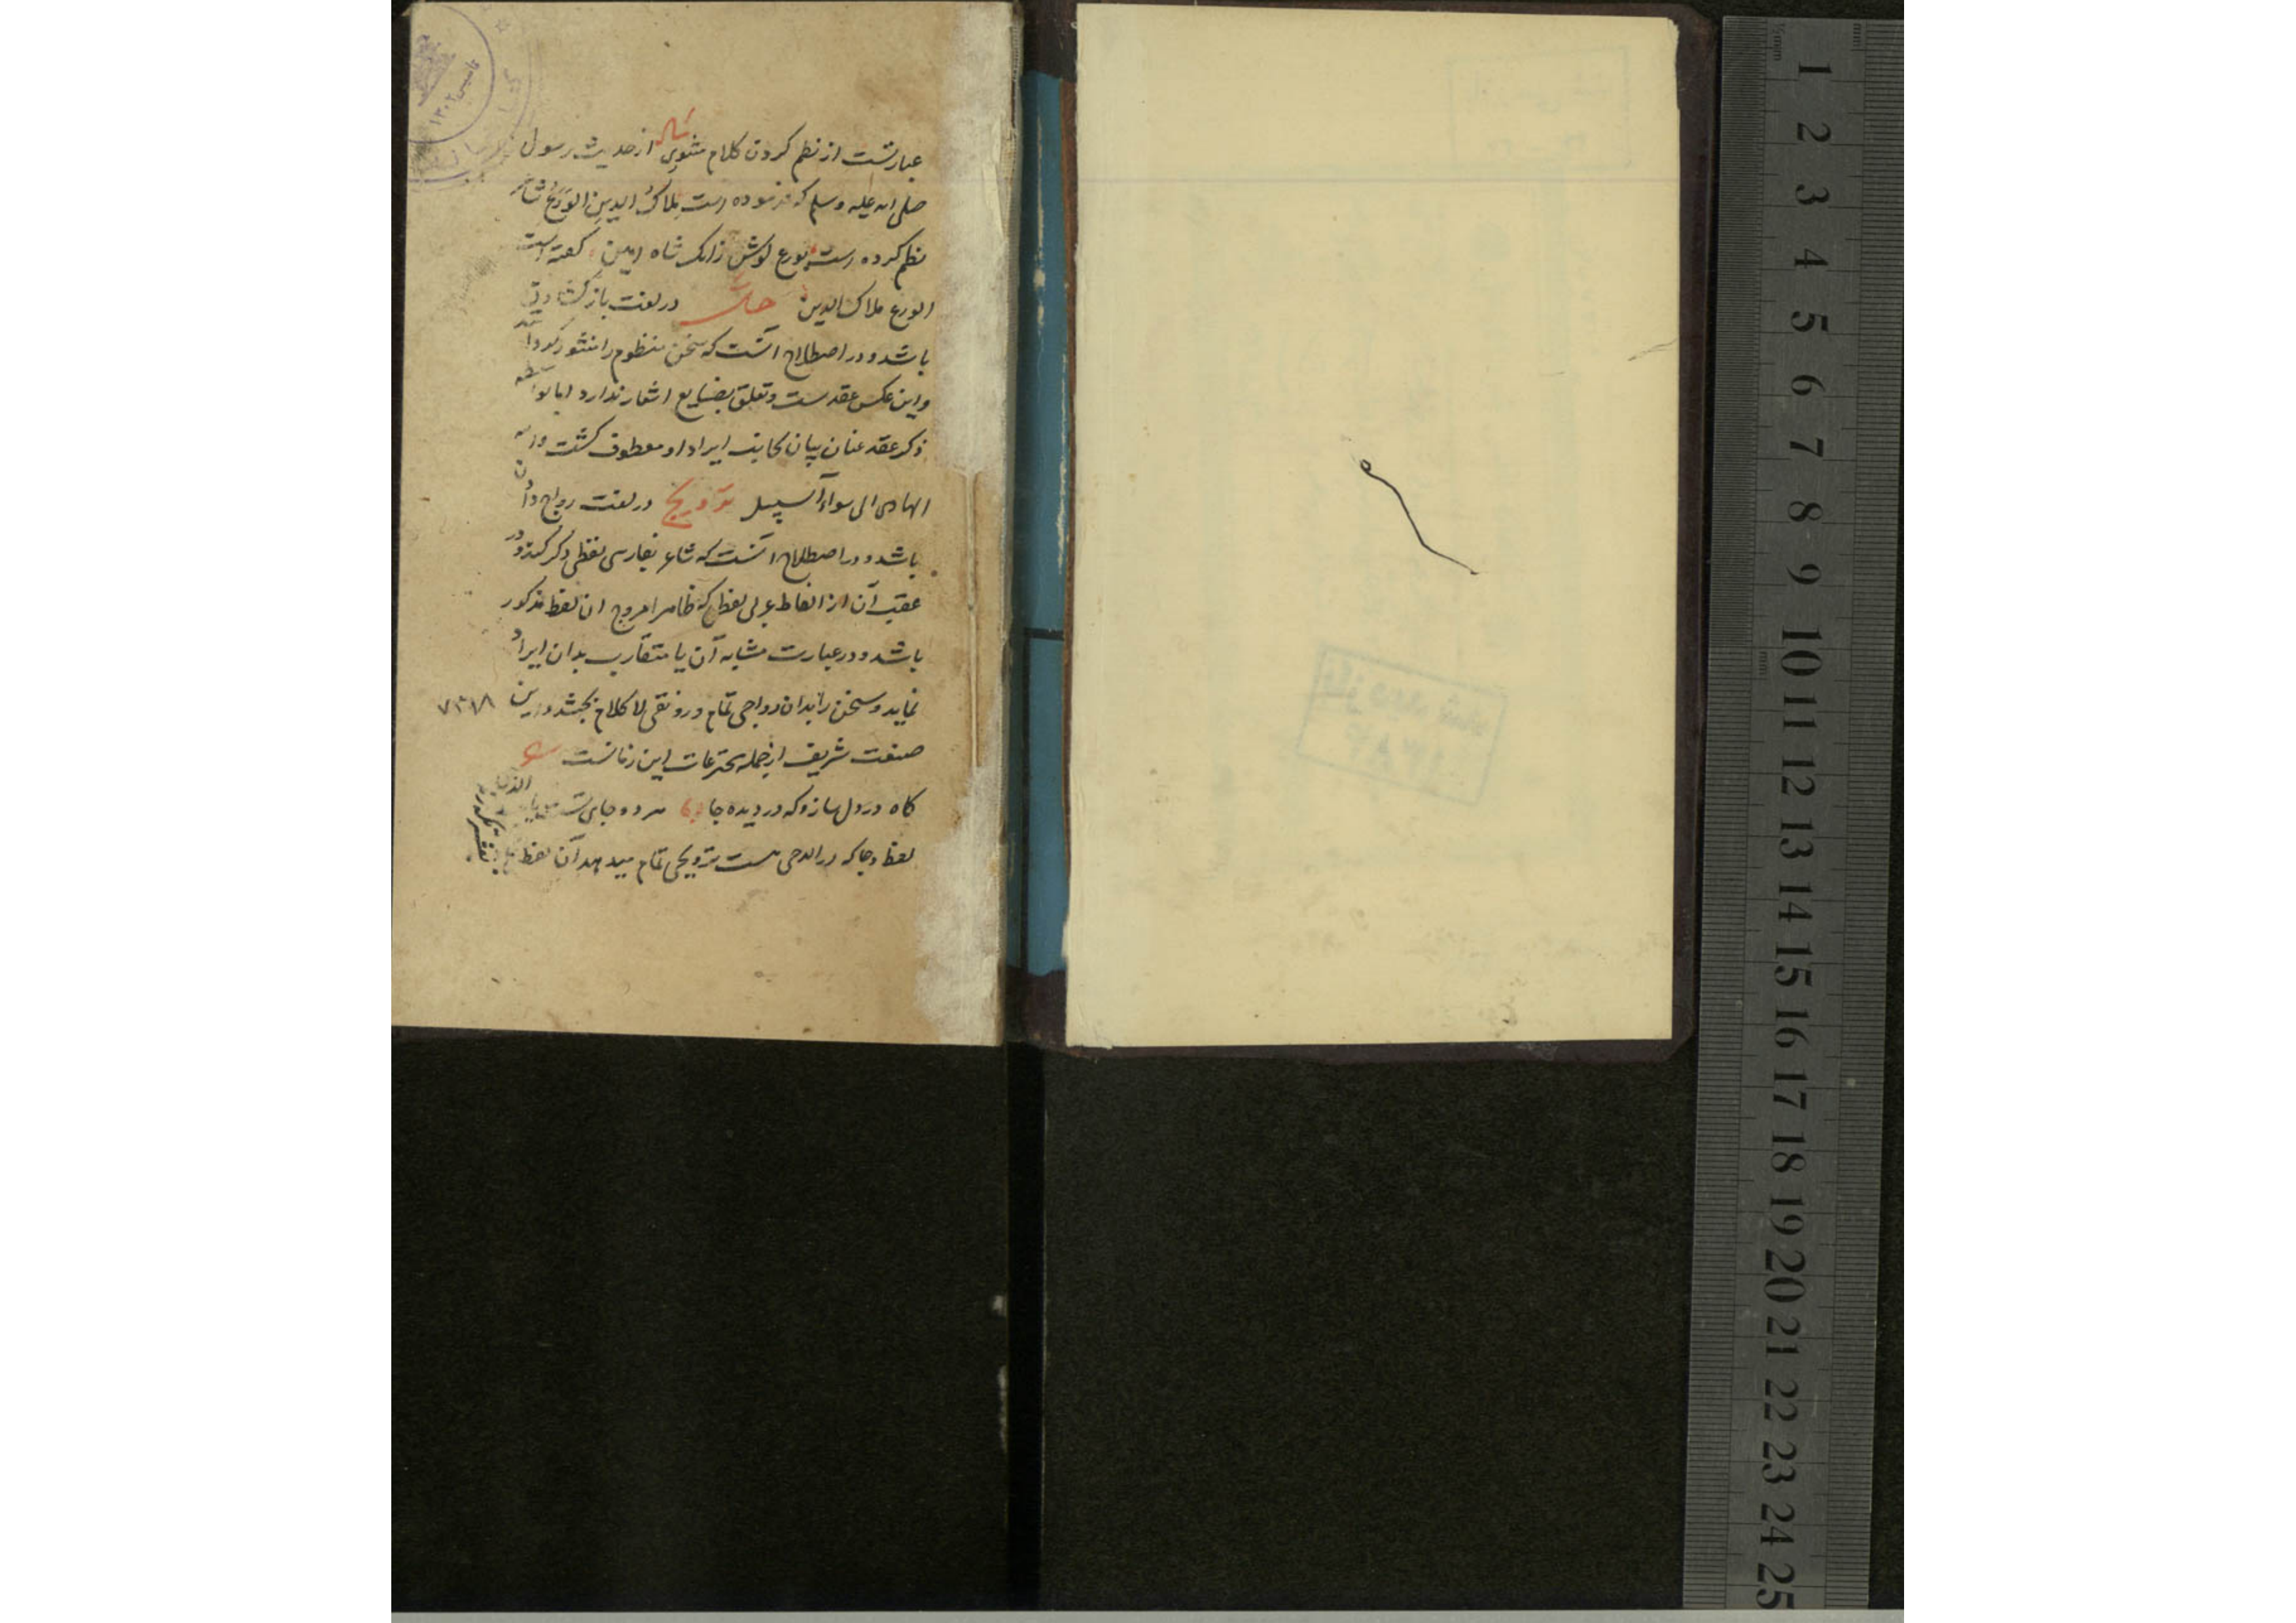 عبارتست از نظم کردن کلام منثوری مثاله از حدیث رسول
صلی الله علیه وسلم که فرموده است ملاک الدین الورع شاعر
نظم کرده است بورع کوش زانک شاه امین کفته است
الورع ملاک الدین حل در لغت باز کشادن
باشد و در اصطلاح آنست که سخن منظوم را منثور کرداند
واین عکس عقدست وتعلق بصنایع اشعار ندارد اما بواسطه
ذکر عقد عنان بیان بجانب ایراد او معطوف کشت والله
الهادی الی سواء السبیل ترویج در لغت رواج دادن
باشد و در اصطلاح آنست که شاعر بفارسی لفظی ذکر کند و در
عقب آن از الفاظ عربی لفظی که ظاهرا مروج ان لفظ مذکور
باشد و در عبارت مشابه آن یا متقارب بدان ایراد
نماید و سخن را بدان رواجی تمام و رونقی لا کلام بخشد و این
۷۳۱۸
صنعت شریف از جمله مخترعات این زمانست
کاه در دل ساز و که در دیده جا هر دو جای تست
لفظ وجا که در است ترویجی تمام میدهد آن لفظ
تاسیس ۱۳۰۲
باز دید شد
۱۳۸۴
1
2
3
4
5
6
7
8
9
10
11
12
13
14
15
16
17
18
19
20
21
22
23
24
25
mm
½mm